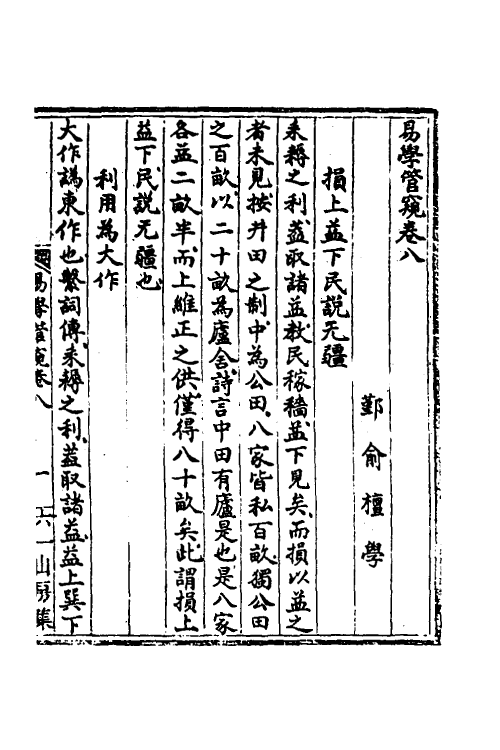 易學管窺卷八
鄞俞檀學
損上益下民說无疆
耒耨之利蓋取諸益教民稼穡益下見矣而損以益之
者未見按井田之制中為公田八家皆私百畝獨公田
之百畝以二十畝為廬舍詩言中田有廬是也是八家
各益二畝半而上維正之供僅得八十畝矣此謂損上
益下民說无疆也
利用為大作
大作謂東作也繫詞傳耒耨之利蓋取諸益益上巽下
易學管窺卷八 一 六一山房集